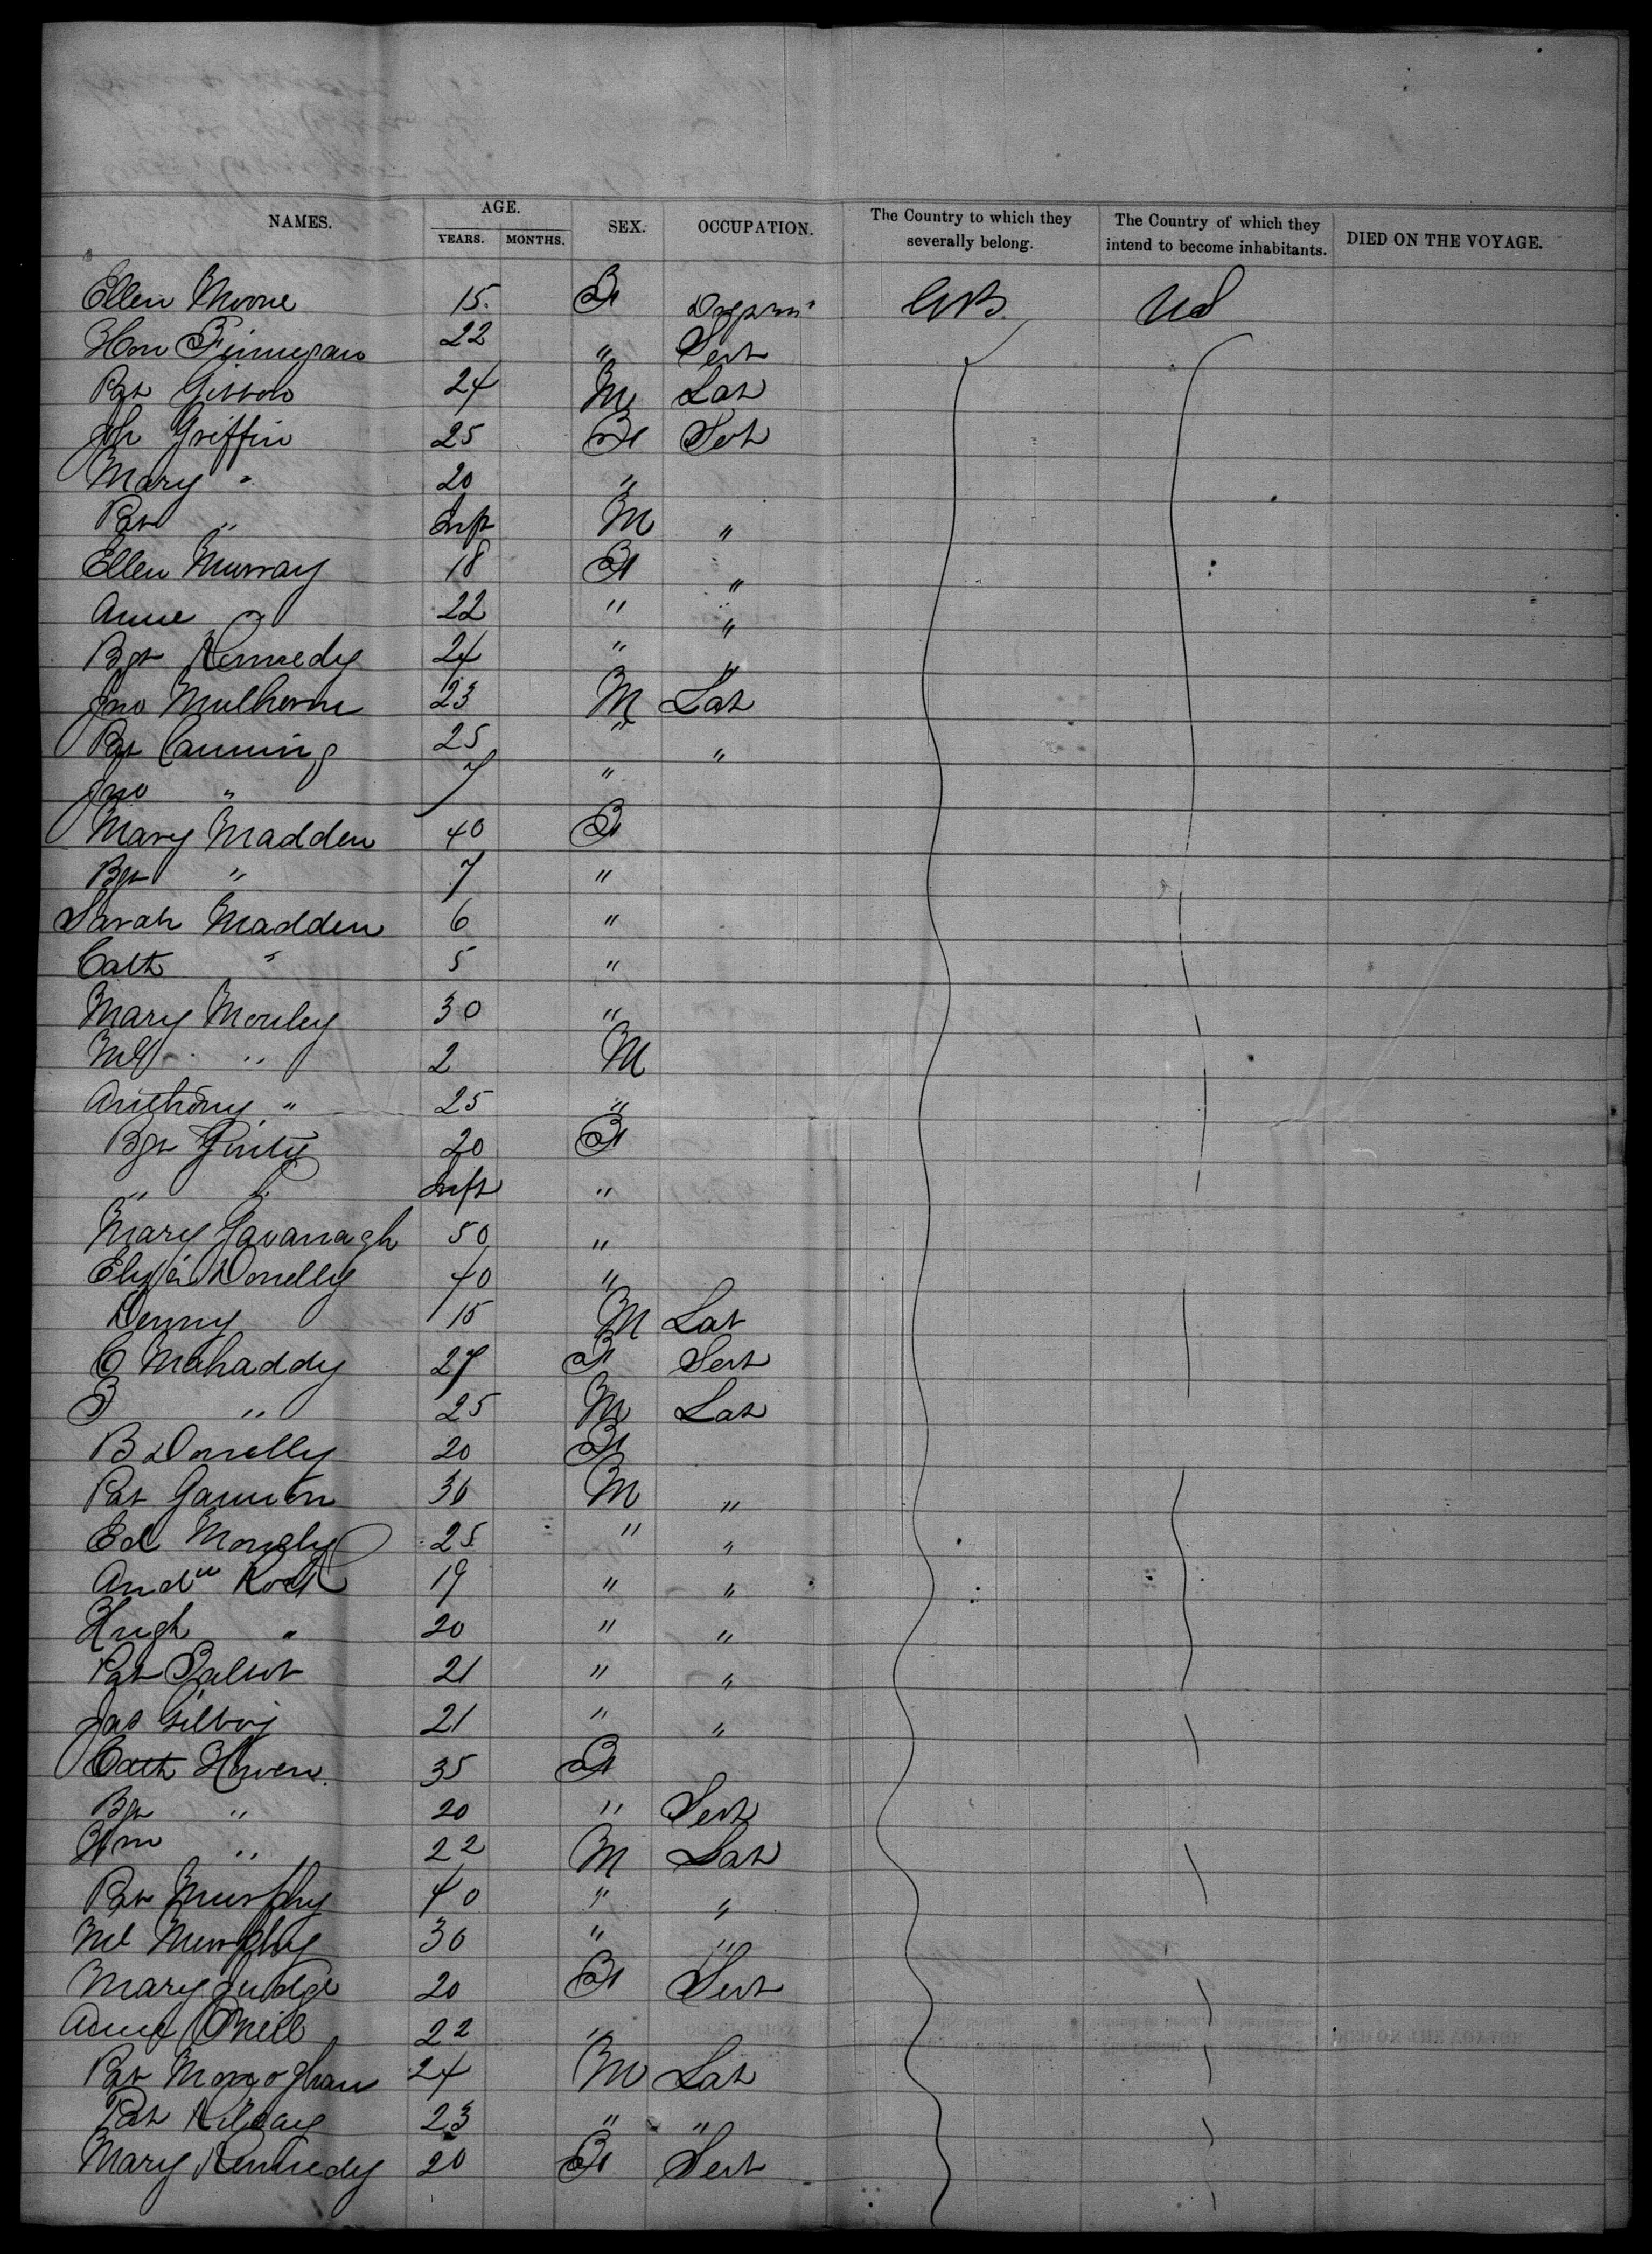 NAMES. AGE. SEX. OCCUPATION. The Country to which they severally belong. The Country of which they intend to become inhabitants. DIED ON THE VOYAGE.
YEARS. MONTHS.
Ellen Moore 15. F GB US
Hon Finnegan 22 " Sert
Pat Gibbons 24 M Lab
Jh Griffin 25 F Sert
Mary " 20 "
Pat " Inft M "
Ellen Murray 18 F "
Anne " 22 " "
Bgt Kennedy 24 " "
Jno Mulherne 23 M Lab
Pat Canning 25 " "
Jno " 7 "
Mary Madden 40 F
Bgt " 7 "
Sarah Madden 6 "
Cath " 5 "
Mary Mouley 30 "
Ml " 2 M
Anthony " 25 "
Bgt Ginty 20 F
" " Inft "
Mary Gavanagh 50 "
Eliza Donelly 40 "
Denny 15 M Lab
C Mahaddy 27 F Sert
" 25 M Lab
B Donelly 20 F
Pat Gannon 30 M "
Ed Mongly 25 " "
Andw 19 " "
Hugh " 20 " "
Pat 21 " "
Jas Gilboy 21 " "
Cath Howen. 35 F
Bgt " 20 " Sert
" 22 M Lab
Pat Murphy 40 " "
Ml Murphy 30 " "
Mary Judge 20 F Sert
Anne ONeill 22 "
Pat Monoghan 24 M Lab
Pat Kilday 23 " "
Mary Kennedy 20 F Sert